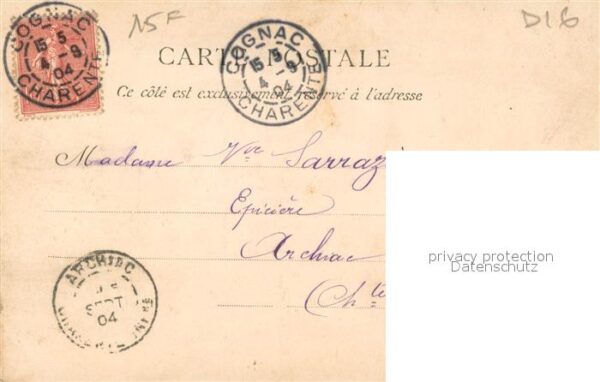 15F
D16
COGNAC
15 5
4 -9
04
CHARENTE
COGNAC
15 5
4 -9
04
CHARENTE
CARTE POSTALE
Ce côté est exclusivement réservé à l'adresse
Madame Vve Sarraz
Epicière
Archiac
(Ch te
ARCHIAC
SEPT
04
privacy protection
Datenschutz